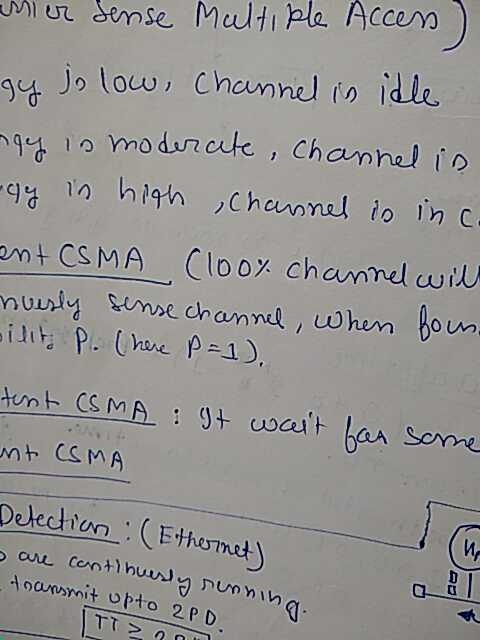 Sense Multiple Access)
gy is low, Channel is idle
is moderate, Channel is
is high, Channel is in
ent CSMA (100% channel will
sense channel, when
P. (here P=1).
tent CSMA : It wait for some
ent CSMA
Detection : (Ethernet)
are continuesly running.
transmit upto 2PD.
TT ≥